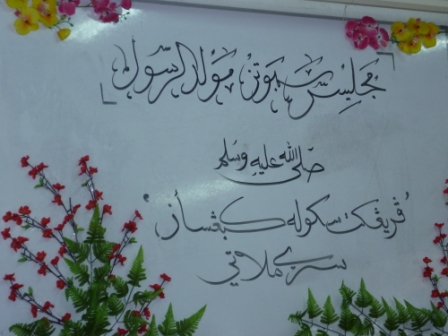 مجليس سمبوتن مولد الرسول
صلى الله عليه وسلم
"ڤريڠكت سكوله كبڠساٴن"
سري ملاتي